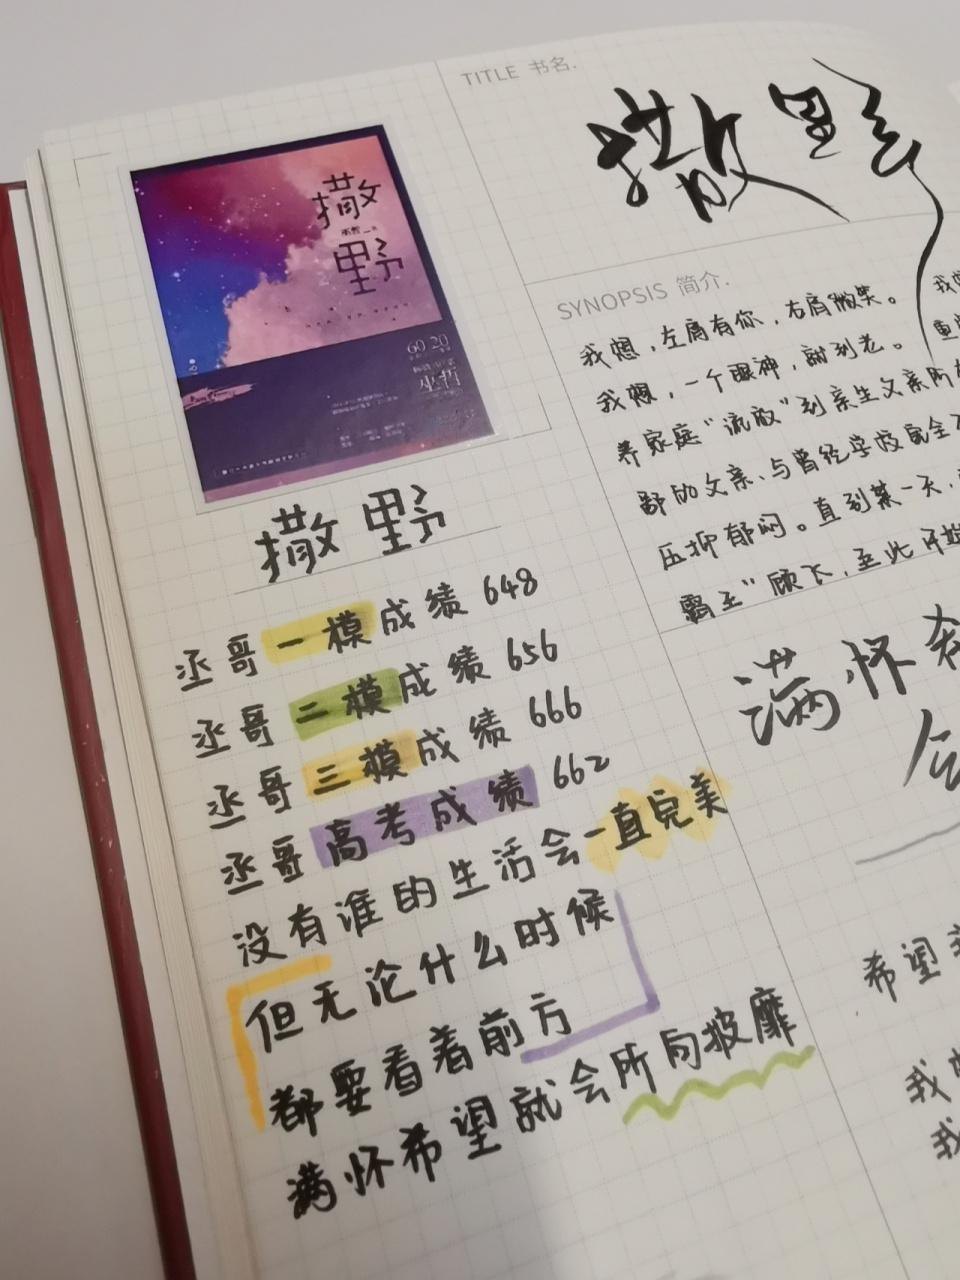 TITLE 书名.
撒野
撒
野
巫哲
60 20
巫哲
撒野
丞哥一模成绩 648
丞哥二模成绩 656
丞哥三模成绩 666
丞哥高考成绩 662
没有谁的生活会一直完美
但无论什么时候
都要看着前方
满怀希望就会所向披靡
SYNOPSIS 简介.
我想,左肩有你,右肩微笑。
我想,一个眼神,就到老。
养家庭“流放”到亲生父亲所
的父亲、与曾经学校完全
压抑郁闷。直到某一天,
霸王”顾飞,至此开始
满怀希
会
希望
我
我
我
重